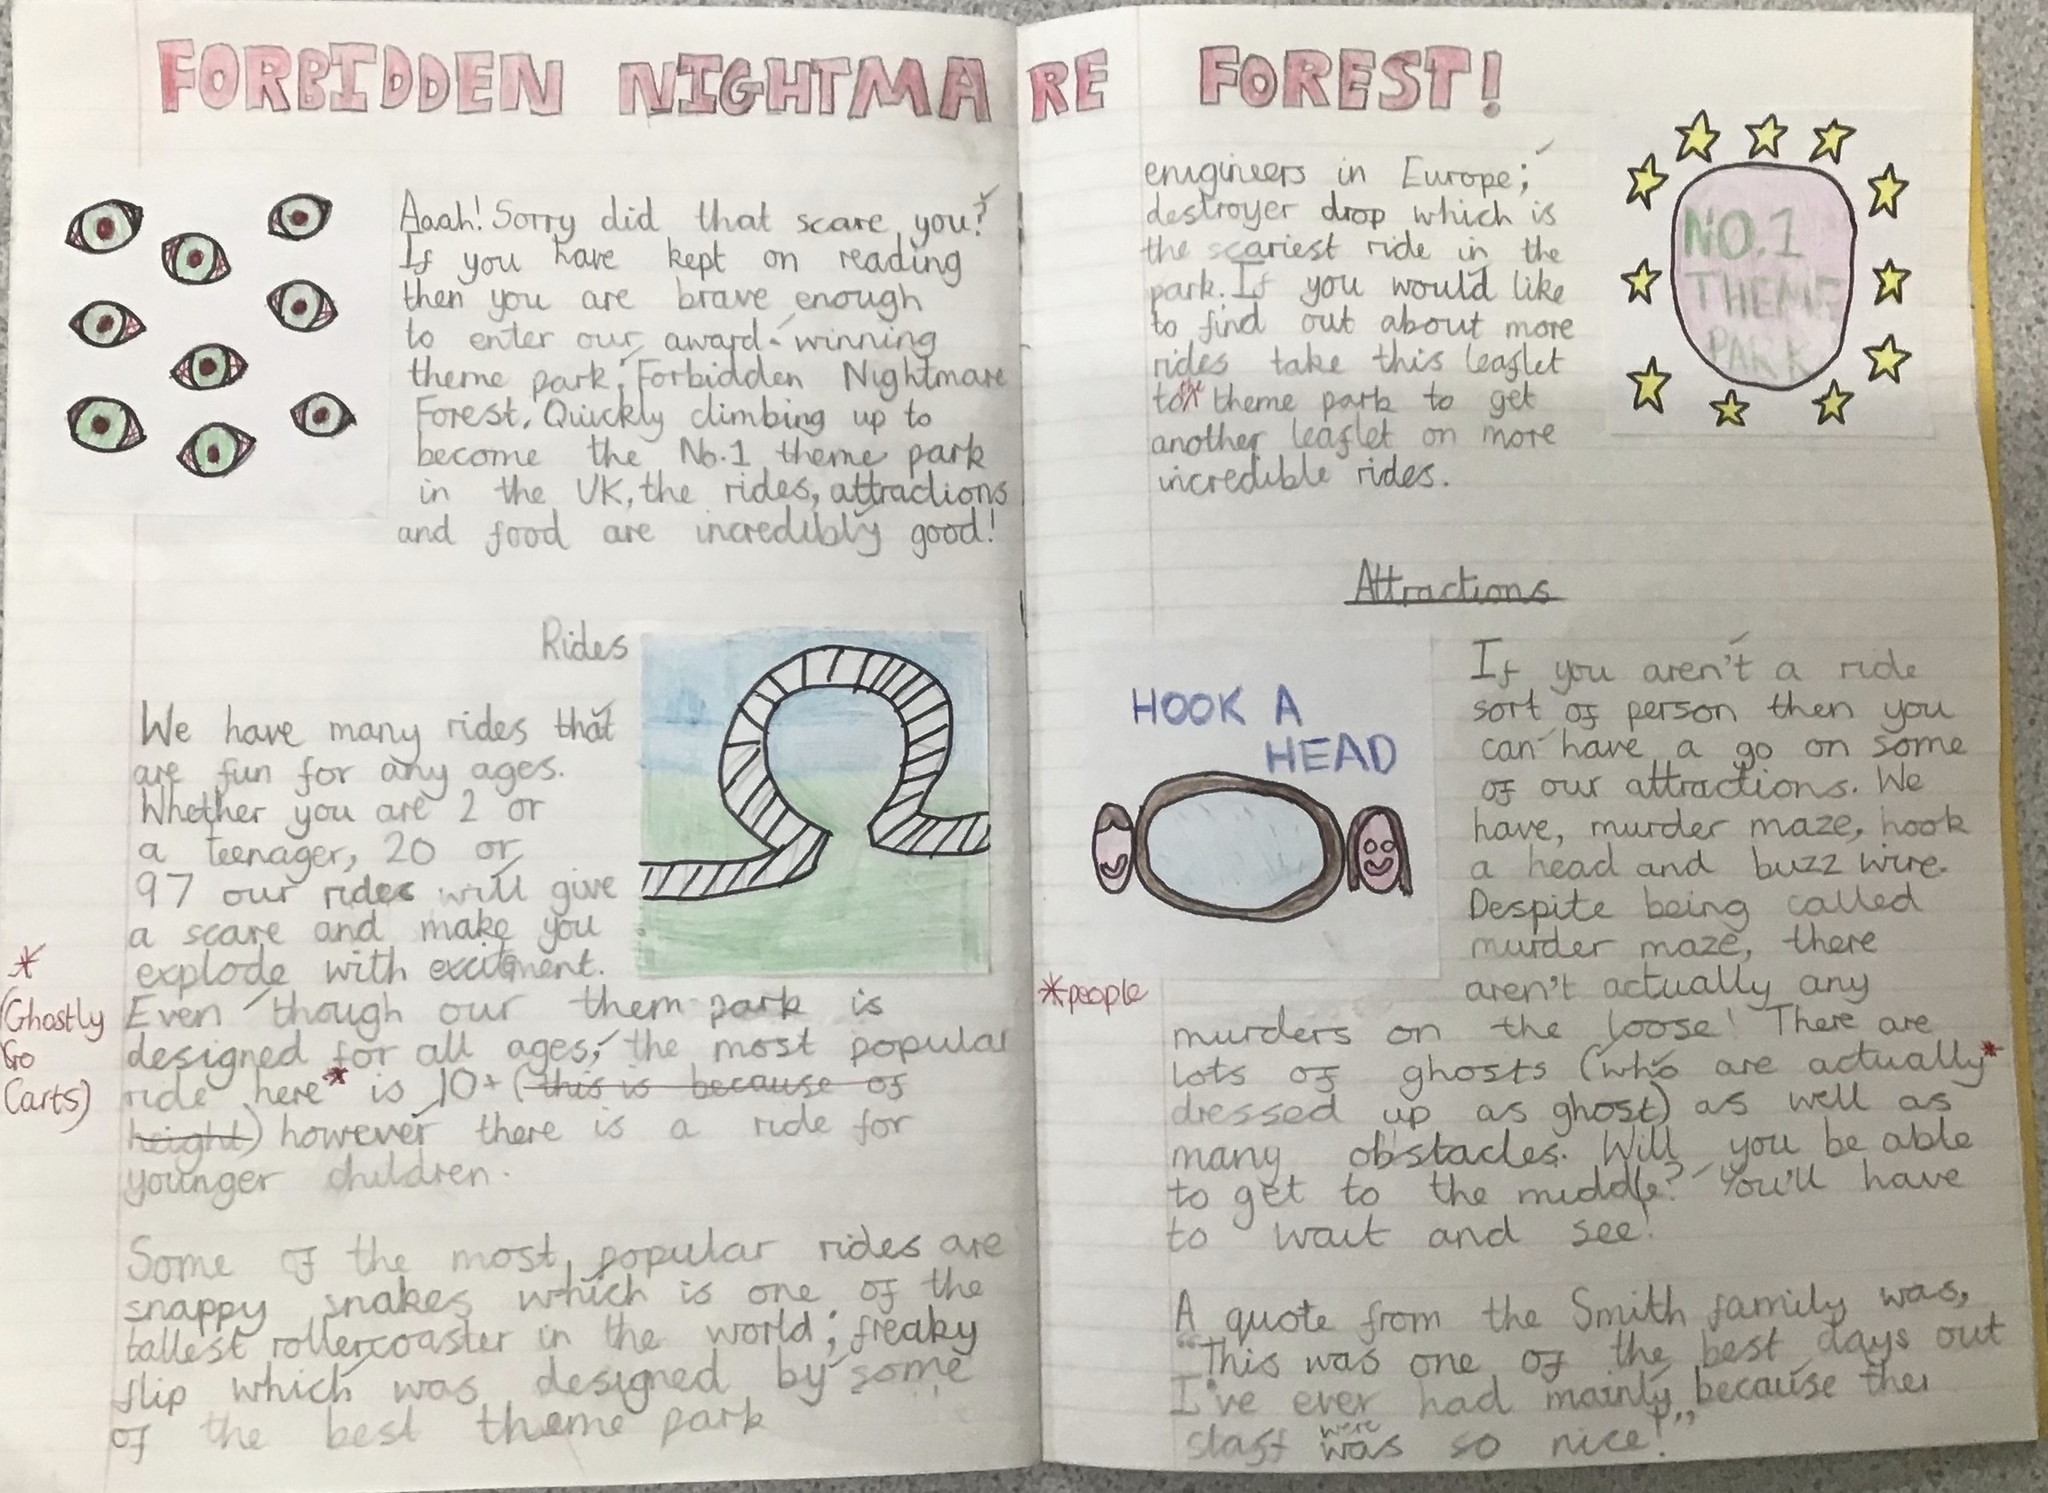 FORBIDDEN NIGHTMARE FOREST!
Aaah! Sorry did that scare you?
If you have kept on reading
then you are brave enough
to enter our award-winning
theme park, Forbidden Nightmare
Forest. Quickly climbing up to
become the No.1 theme park
in the UK, the rides, attractions
and food are incredibly good!
Rides
We have many rides that
are fun for any ages.
Whether you are 2 or
a teenager, 20 or
97 our rides will give
a scare and make you
explode with excitment.
Even though our them park is
designed for all ages, the most popular
ride here* is 10+ (this is because of
height) however there is a ride for
younger children.
*
(Ghostly
Go
Carts)
Some of the most popular rides are
snappy snakes which is one of the
tallest rollercoaster in the world; freaky
flip which was designed by some
of the best theme park
enigineers in Europe;
destroyer drop which is
the scariest ride in the
park. If you would like
to find out about more
rides take this leaflet
to the theme park to get
another leaflet on more
incredible rides.
NO.1
THEME
PARK
Attractions
HOOK A
HEAD
If you aren't a ride
sort of person then you
can have a go on some
of our attractions. We
have, murder maze, hook
a head and buzz wire.
Despite being called
murder maze, there
aren't actually any
murders on the loose! There are
lots of ghosts (who are actually*
dressed up as ghost) as well as
many obstacles. Will you be able
to get to the middle? You'll have
to wait and see!
*people
A quote from the Smith family was,
"This was one of the best days out
I've ever had mainly because the
staff was were so nice!"